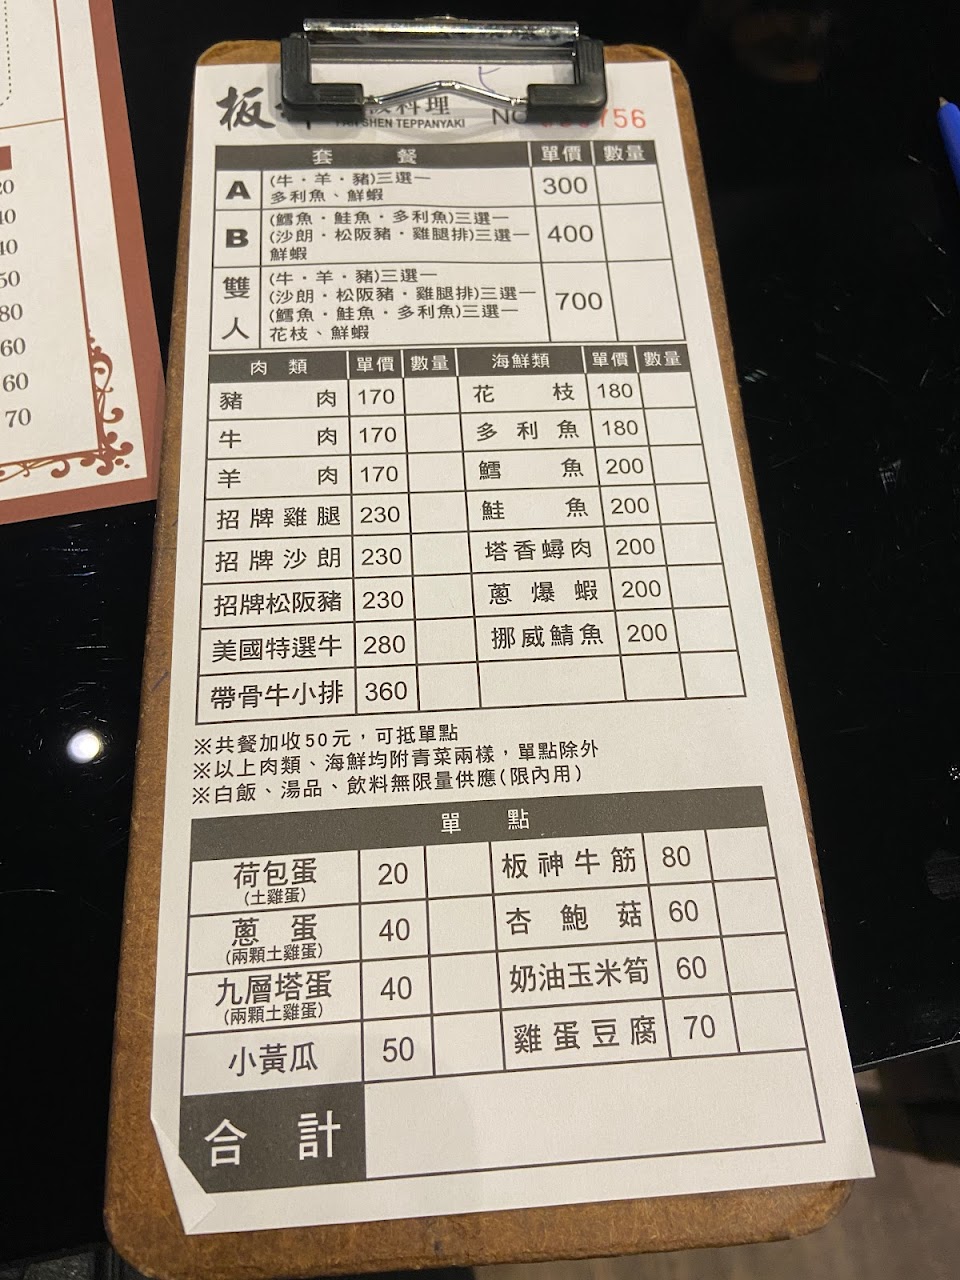 板
板料理
PAN SHEN TEPPANYAKI
NO 756
套 餐 單價 數量
A (牛·羊·豬)三選一 300
多利魚、鮮蝦
B (鱈魚·鮭魚·多利魚)三選一 400
(沙朗·松阪豬·雞腿排)三選一
鮮蝦
雙人 (牛·羊·豬)三選一 700
(沙朗·松阪豬·雞腿排)三選一
(鱈魚·鮭魚·多利魚)三選一
花枝、鮮蝦
肉 類 單價 數量 海鮮類 單價 數量
豬 肉 170 花 枝 180
牛 肉 170 多利魚 180
羊 肉 170 鱈 魚 200
招牌雞腿 230 鮭 魚 200
招牌沙朗 230 塔香蟳肉 200
招牌松阪豬 230 蔥爆蝦 200
美國特選牛 280 挪威鯖魚 200
帶骨牛小排 360
※共餐加收50元，可抵單點
※以上肉類、海鮮均附青菜兩樣，單點除外
※白飯、湯品、飲料無限量供應(限內用)
單 點
荷包蛋 20 板神牛筋 80
(土雞蛋)
蔥 蛋 40 杏鮑菇 60
(兩顆土雞蛋)
九層塔蛋 40 奶油玉米筍 60
(兩顆土雞蛋)
小黃瓜 50 雞蛋豆腐 70
合 計
20
40
40
50
80
60
60
70